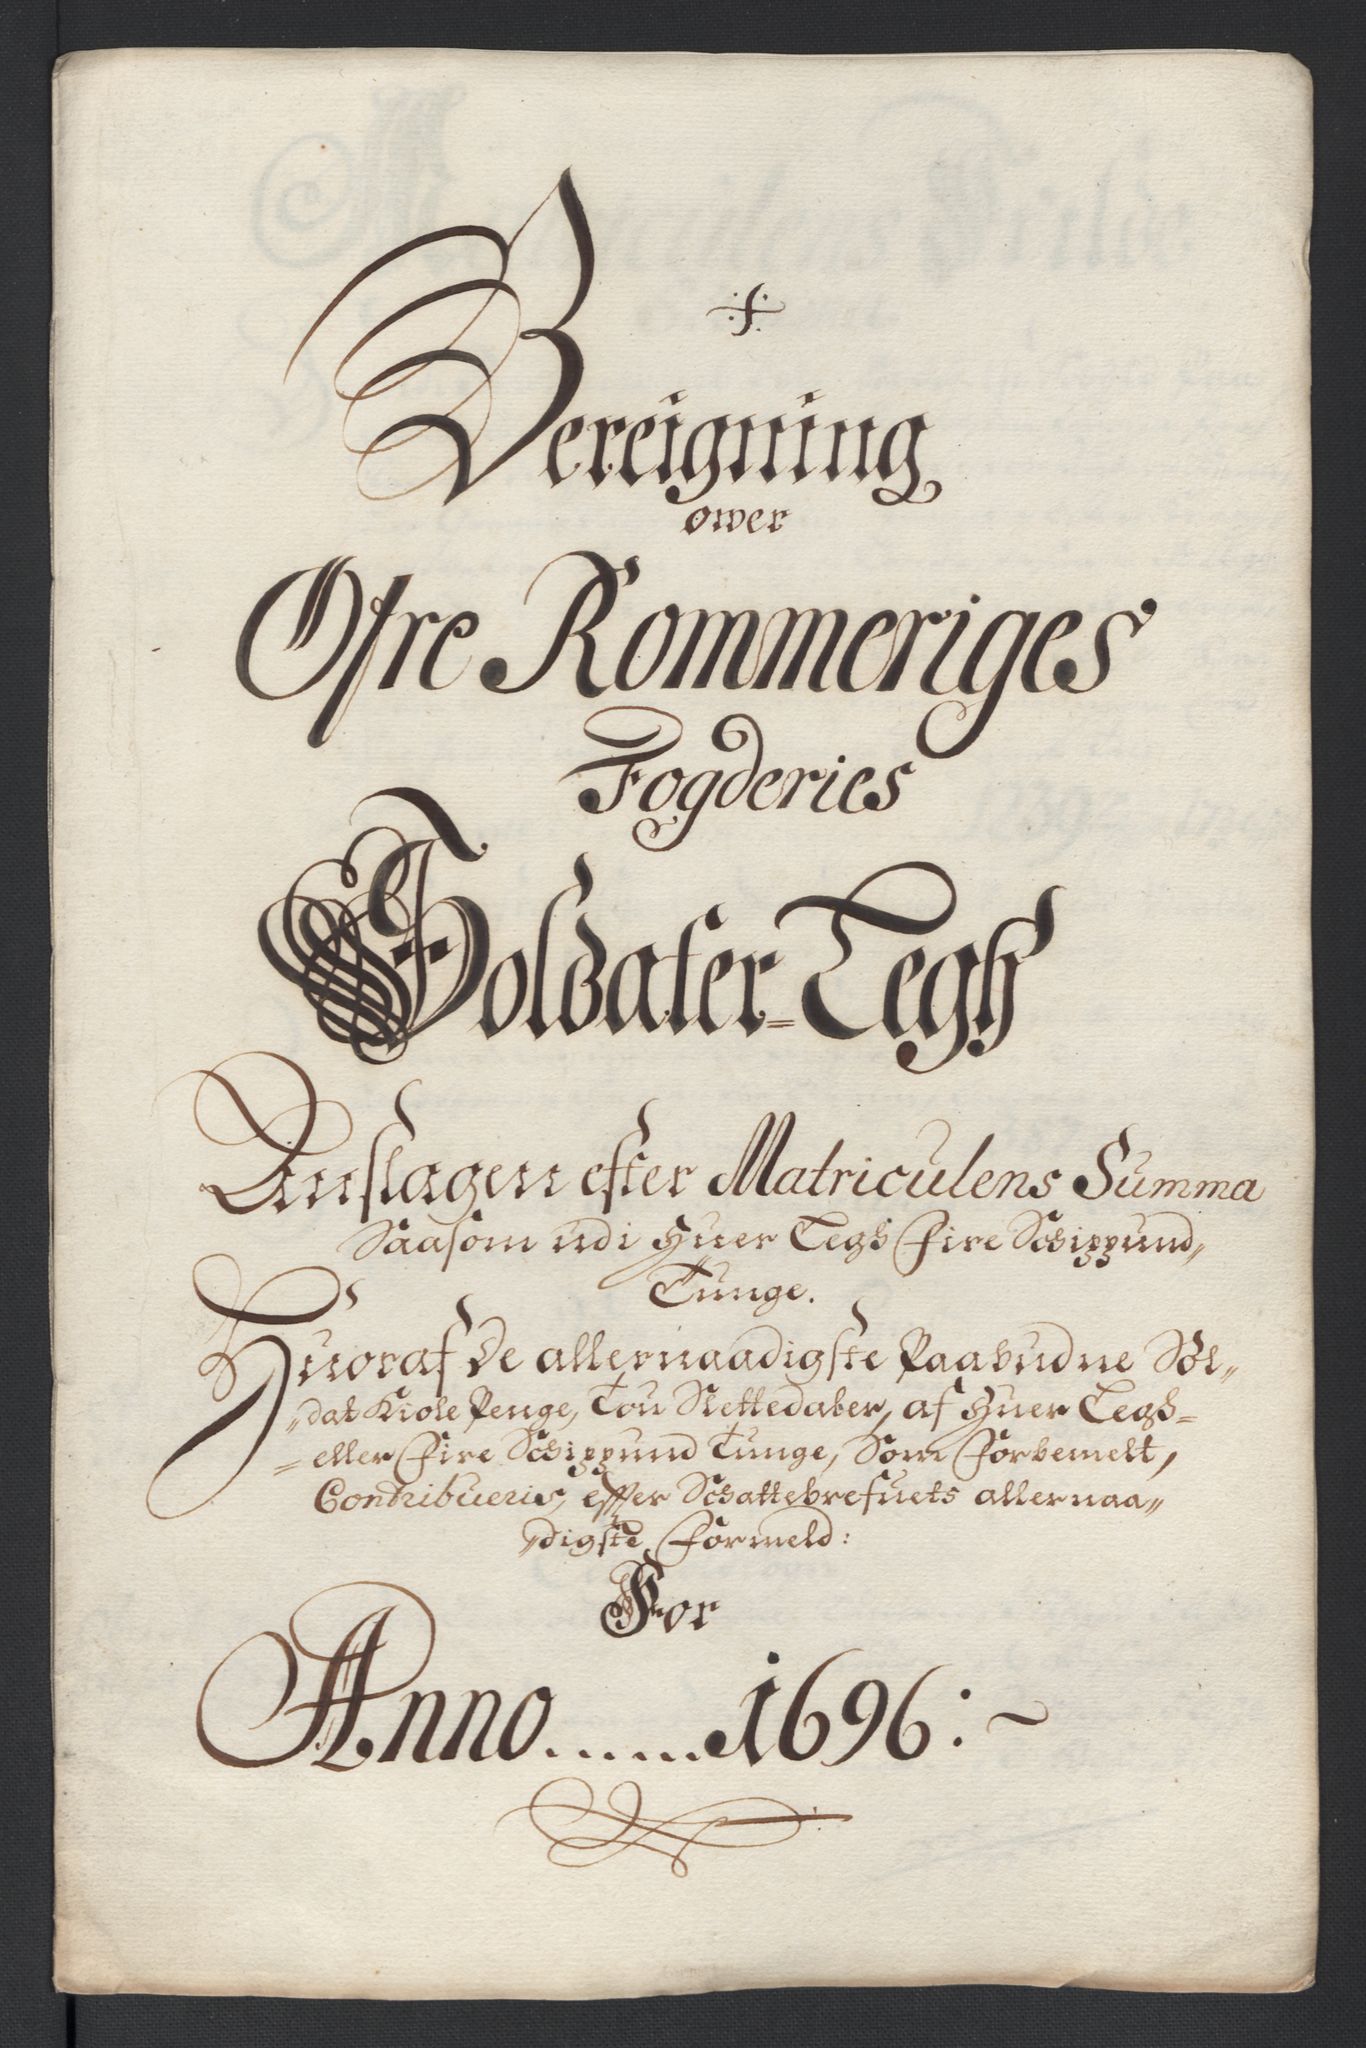 Bereigning
ower
Ofre Rommeriges
Fogderies
Soldater-Legh
Anslagen efter Matriculens Summa
Saasom udi Huer Legh Fire Schippund
Tunge.
Huoraf de allernaadigste Paabudne Sol-
dat Kiole Penge, Tou Slettedaler, af Huer Legh-
eller Fire Schippund Tunge, Som Forbemelt,
Contribueris, effter Schattebrefuets allernaa-
digste Formeld:
For
Anno......1696:~